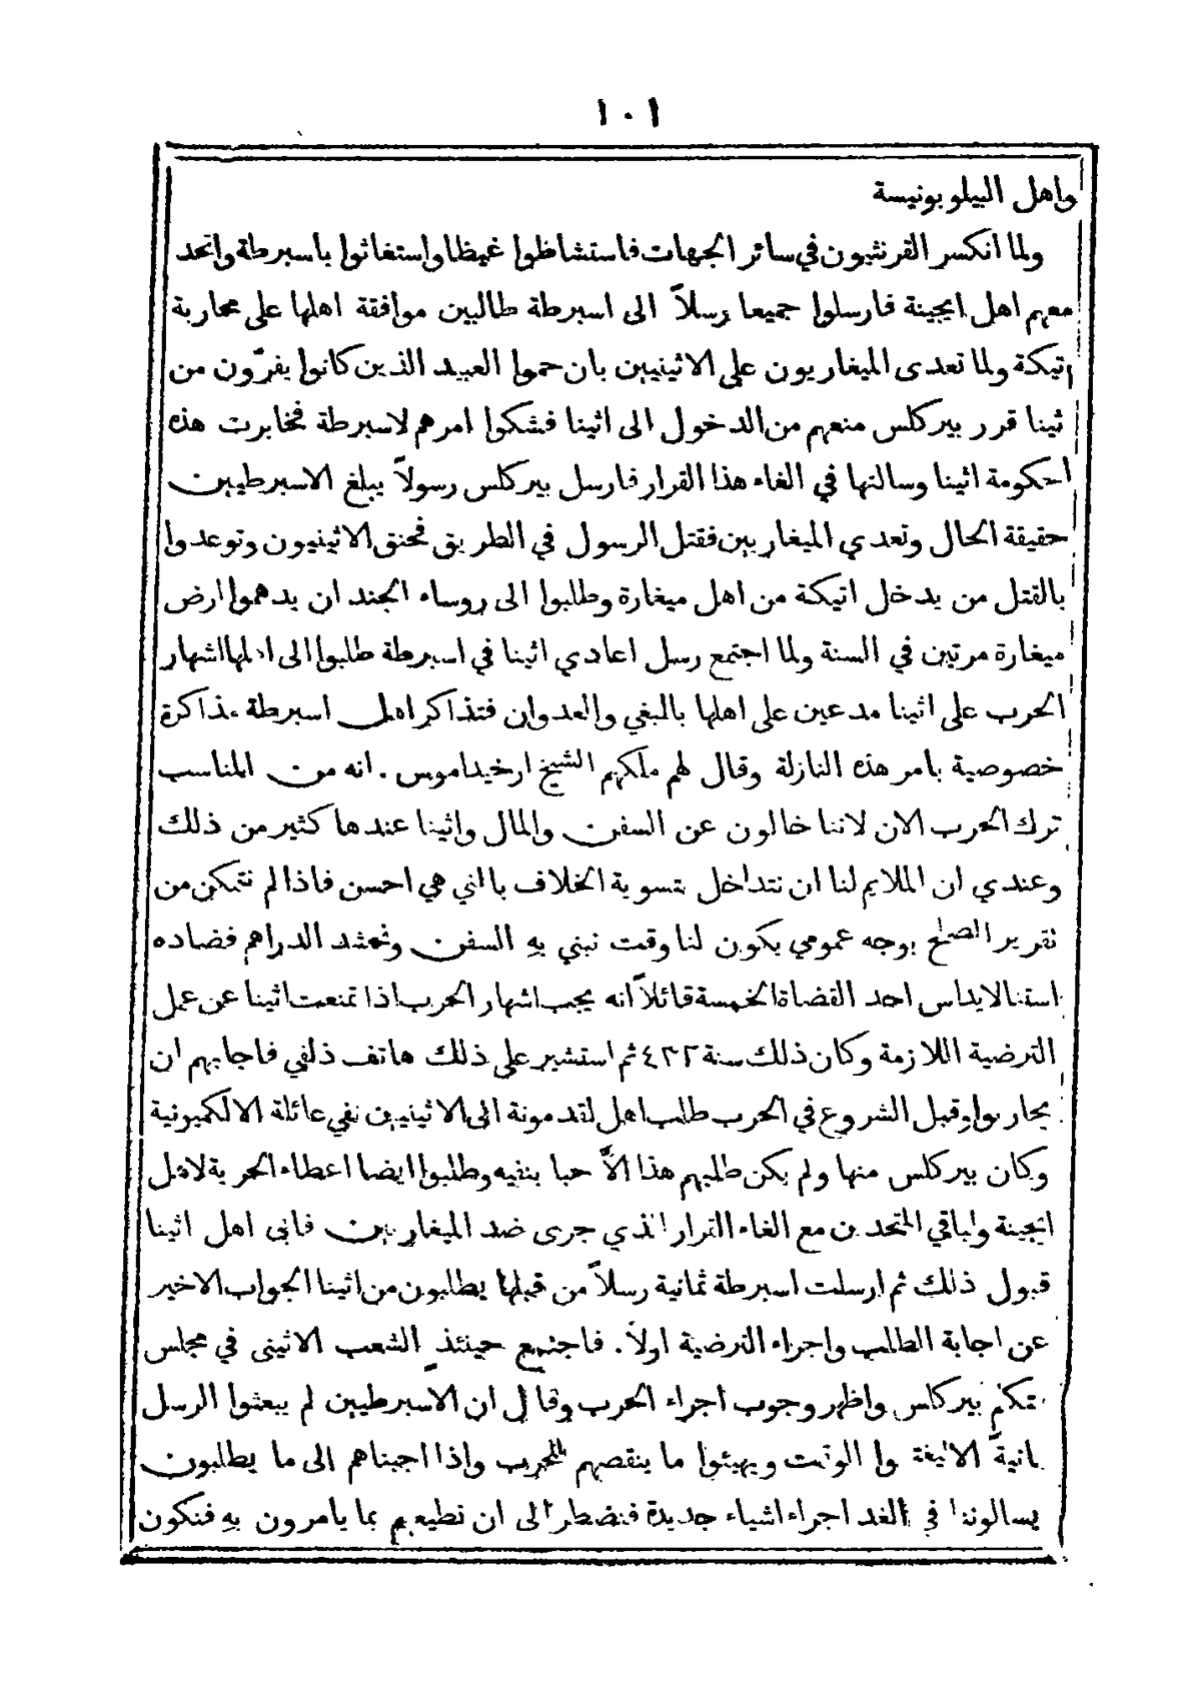 ١٠١
واهل البيلوبونيسة
ولما انكسر القرنثيون في سائر الجهات فاستشاظوا غيظا واستغاثوا باسبرطة واتحد
معهم اهل ايجينة فارسلوا جميعا رسلاً الى اسبرطة طالبين موافقة اهلها على محاربة
اتيكة ولما تعدى الميغاريون على الاثينيين بان حموا العبيد الذين كانوا يفرّون من
ثينا قرر بيركلس منعهم من الدخول الى اثينا فشكوا امرهم لاسبرطة فخابرت هذه
احكومة اثينا وسالتها في الغاء هذا القرار فارسل بيركلس رسولاً يبلغ الاسبرطيين
حقيقة الحال وتعدي الميغاريين فقتل الرسول في الطريق فحنق الاثينيون وتوعدوا
بالقتل من يدخل اتيكة من اهل ميغارة وطلبوا الى روساء الجند ان يدهموا ارض
ميغارة مرتين في السنة ولما اجتمع رسل اعادي اثينا في اسبرطة طلبوا الى اهلها اشهار
الحرب على اثينا مدعين على اهلها بالبغي والعدوان فتذاكر اهل اسبرطة مذاكرة
خصوصية بامر هذه النازلة وقال لهم ملكهم الشيخ ارخيداموس . انه من المناسب
ترك الحرب الان لاننا خالون عن السفن والمال واثينا عندها كثير من ذلك
وعندي ان الملايم لنا ان نتداخل بتسوية الخلاف بالتي هي احسن فاذا لم نتمكن من
تقرير الصلح بوجه عمومي يكون لنا وقت نبني بهِ السفن ونحشد الدراهم فضاده
استنالايداس احد القضاة الخمسة قائلاً انه يجب اشهار الحرب اذا تمنعت اثينا عن عمل
الترضية اللازمة وكان ذلك سنة ٤٣٢ ثم استشير على ذلك هاتف ذلفي فاجابهم ان
يحاربوا وقبل الشروع في الحرب طلب اهل لقدمونة الى الاثينيين نفي عائلة الالكميونية
وكان بيركلس منها ولم يكن طلبهم هذا الاَّ حبا بنفيه وطلبوا ايضا اعطاء الحرية لاهل
ايجينة ولباقي المتحدين مع الغاء القرار الذي جرى ضد الميغاريين فابى اهل اثينا
قبول ذلك ثم ارسلت اسبرطة ثمانية رسلاً من قبلها يطلبون من اثينا الجواب الاخير
عن اجابة الطلب واجراء الترضية اولاً . فاجتمع حينئذٍ الشعب الاثيني في مجلس
تكلم بيركلس واظهر وجوب اجراء الحرب وقال ان الاسبرطيين لم يبعثوا الرسل
وا الوقت ويهيئوا ما ينقصهم للحرب واذا اجبناهم الى ما يطلبون
يسالوننا في الغد اجراء اشياء جديدة فنضطر الى ان نطيعهم بما يامرون بهِ فنكون